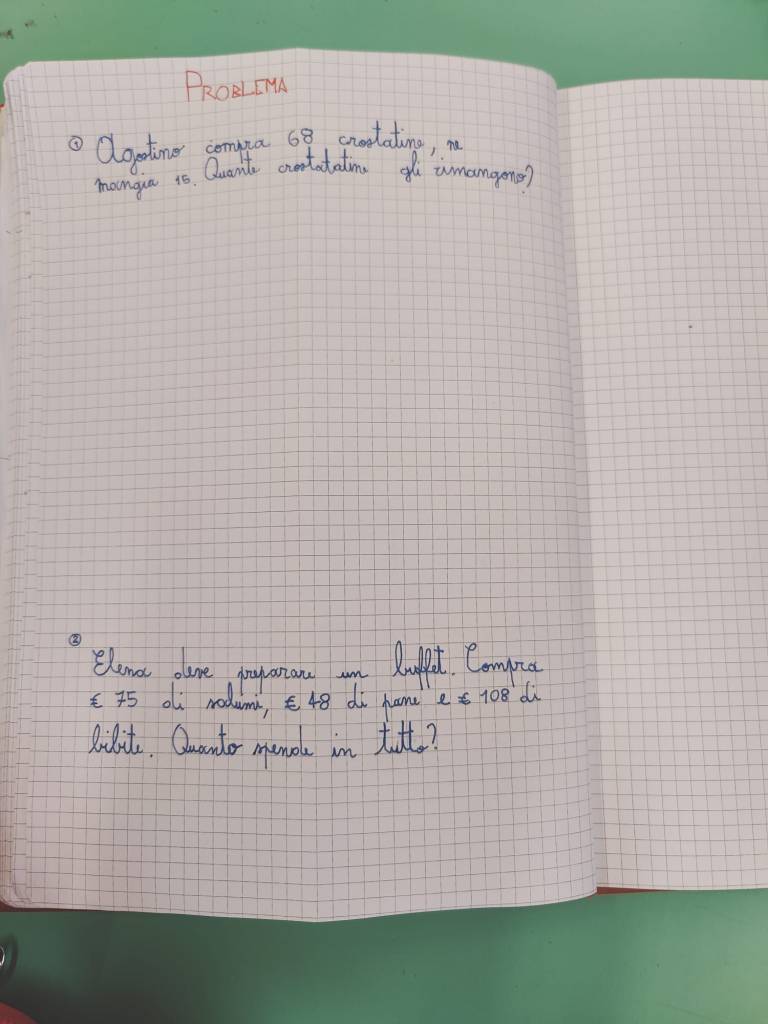 PROBLEMA
① Agostino compra 68 crostatine, ne
mangia 15. Quante crostatatine gli rimangono?
②
Elena deve preparare un buffet. Compra
€ 75 di salumi, € 48 di pane e € 108 di
bibite. Quanto spende in tutto?